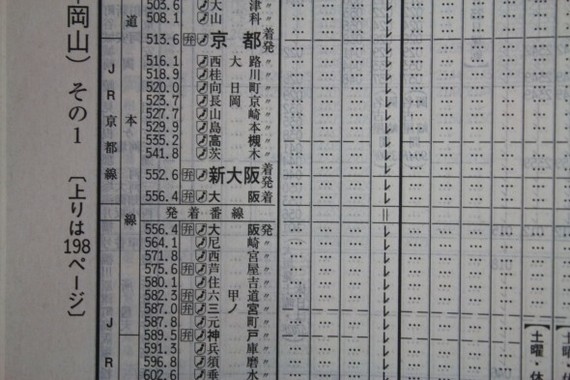 岡山) その1 〔上りは198ページ〕
JR京都線
JR
道本線
503.6 大津 〃
508.1 山科 〃
513.6 弁 京都 着発
516.1 西大路 〃
518.9 桂川 〃
520.0 向日町 〃
523.7 長岡京 〃
527.7 山崎 〃
529.9 島本 〃
535.2 高槻 〃
541.8 茨木 〃
552.6 弁 新大阪 着発
556.4 弁 大阪 着
発着番線
556.4 弁 大阪 発
564.1 尼崎 〃
571.8 西宮 〃
575.6 弁 芦屋 〃
580.1 住吉 〃
582.3 弁 六甲道 〃
587.0 弁 三ノ宮 〃
587.8 元町 〃
589.5 弁 神戸 〃
591.3 兵庫 〃
596.8 須磨 〃
602.6 垂水 〃
【土曜・休
【土曜・休